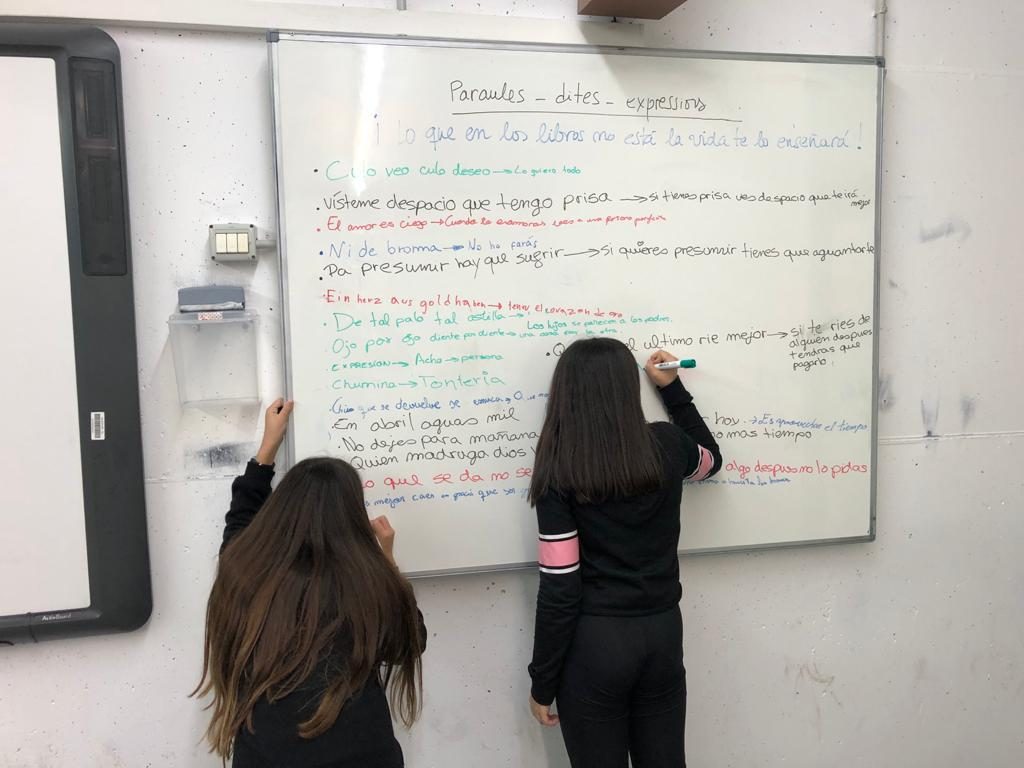 Paraules - dites - expressions
¡Lo que en los libros no está la vida te lo enseñará!
• Culo veo culo deseo → Lo quiero todo
• Vísteme despacio que tengo prisa → si tienes prisa ves despacio que te irá mejor
• El amor es ciego → Cuando te enamoras
• Ni de broma → No ho faràs
• Pa presumir hay que sugrir → si quieres presumir tienes que aguantarte
• Ein herz aus gold haben → tener el corazon de oro
• De tal palo tal astilla → Los hijos se parecen a los padres.
• Ojo por ojo diente por diente → una cosa por la otra
• el ultimo rie mejor → si te ries de alguien despues tendras que pagarlo.
EXPRESION → Acho → persona
Chumina → Tontería
que se devuelve se
• En abril aguas mil
• No dejes para mañana hoy → Es aprovechar el tiempo
• Quien madruga dios mas tiempo
que se da no se algo despues no lo pidas
mejor caer en gracia que ser
ActivBoard